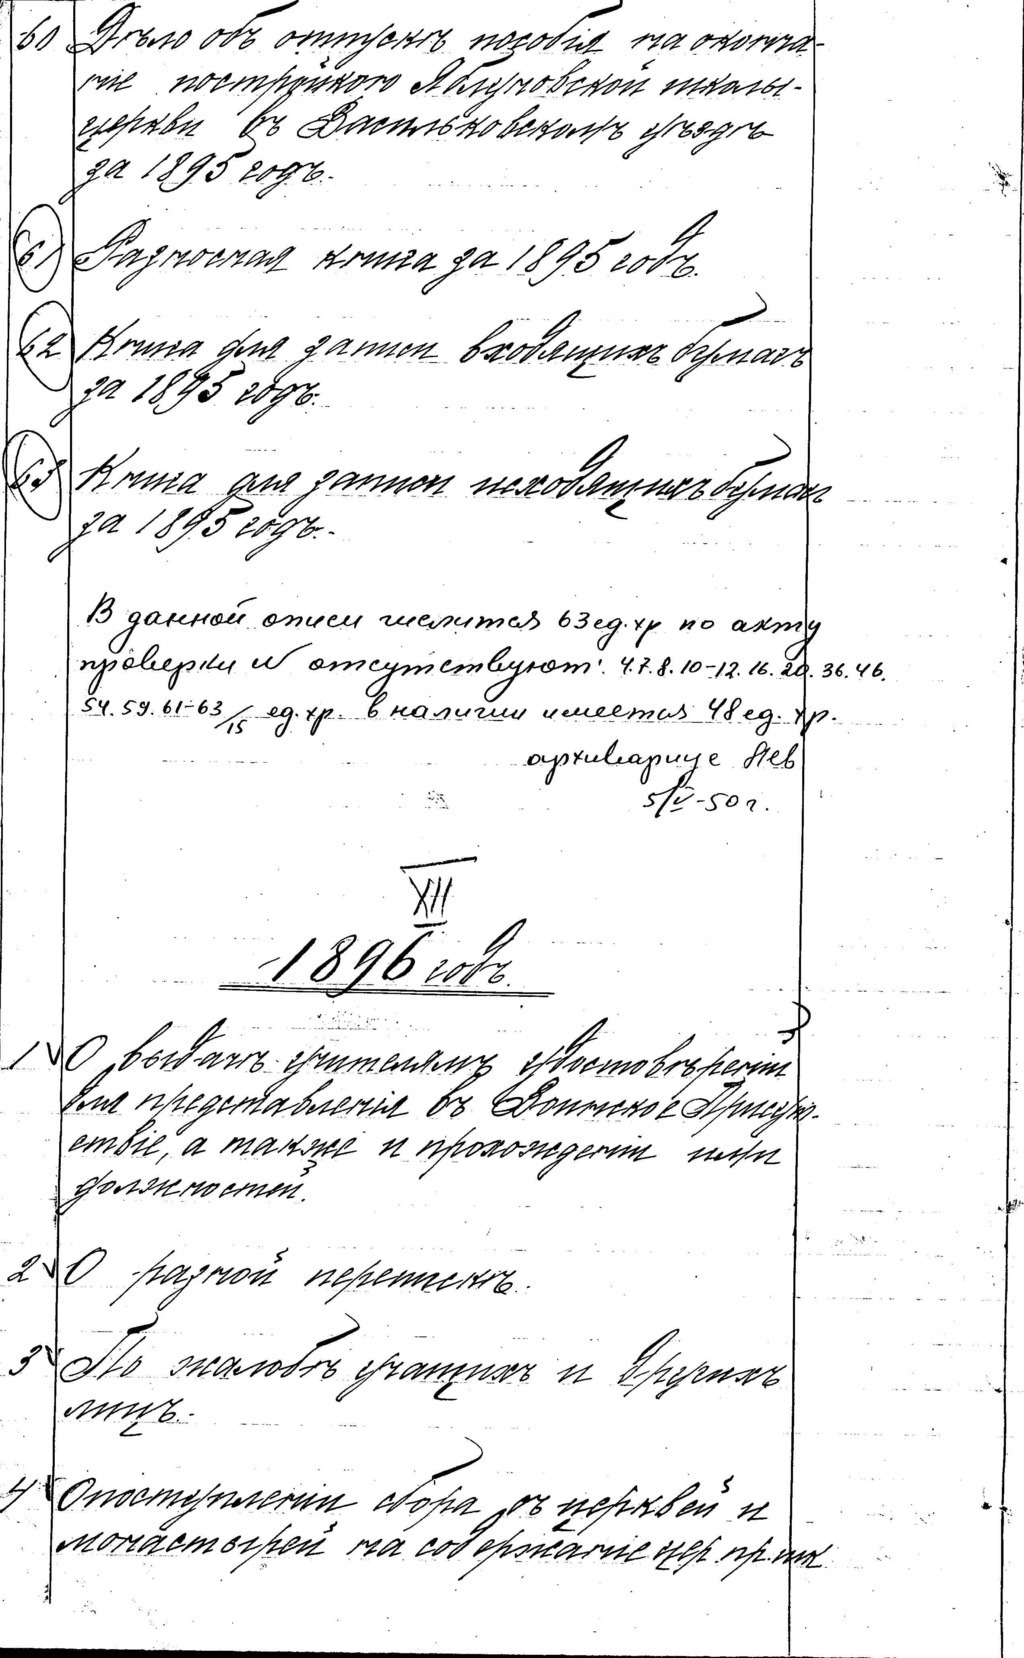 60 Дѣло объ отпускѣ пособія на оконча-
ніе постройкою Яблуновской школы-
церкви въ Васильковскомъ уѣздѣ
за 1895 годъ.
61 Разносная книга за 1895 годъ.
62 Книга для записи входящихъ бумагъ
за 1895 годъ.
63 Книга для записи исходящихъ бумаг
за 1895 годъ.
В данной описи числится 63 ед. хр по акту
проверки № отсутствуют: 4.7.8.10-12.16.20.36.46.
54.59.61-63 /15 ед. хр. в наличии имеется 48 ед. хр.
архивариус
5/V-50 г.
XII
1896 годъ.
1 О выдачѣ учителямъ удостовѣреній
для представленія въ Воинское Присут-
ствіе, а также и прохожденіи ими
должностей.
2 О разной перепискѣ.
3 По жалобѣ учащихъ и другихъ
лицъ.
4 О поступленіи сбора съ церквей и
монастырей на содержаніе цер. пр. шк